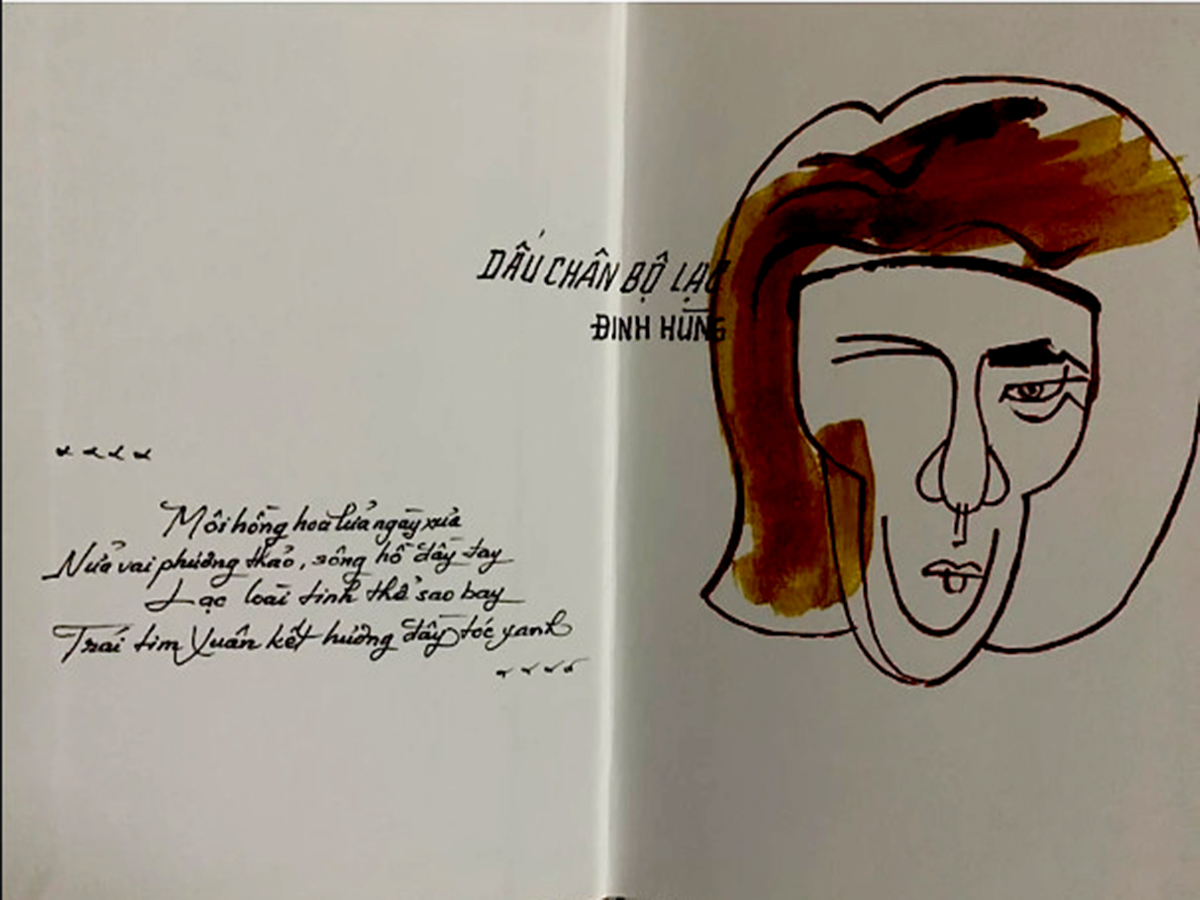 DẤU CHÂN BỘ LẠC
ĐINH HÙNG
Môi hồng hoa lửa ngày xưa
Nửa vai phương thảo, sông hồ đầy tay
Lạc loài tinh thể sao bay
Trái tim Xuân kết hương đầy tóc xanh